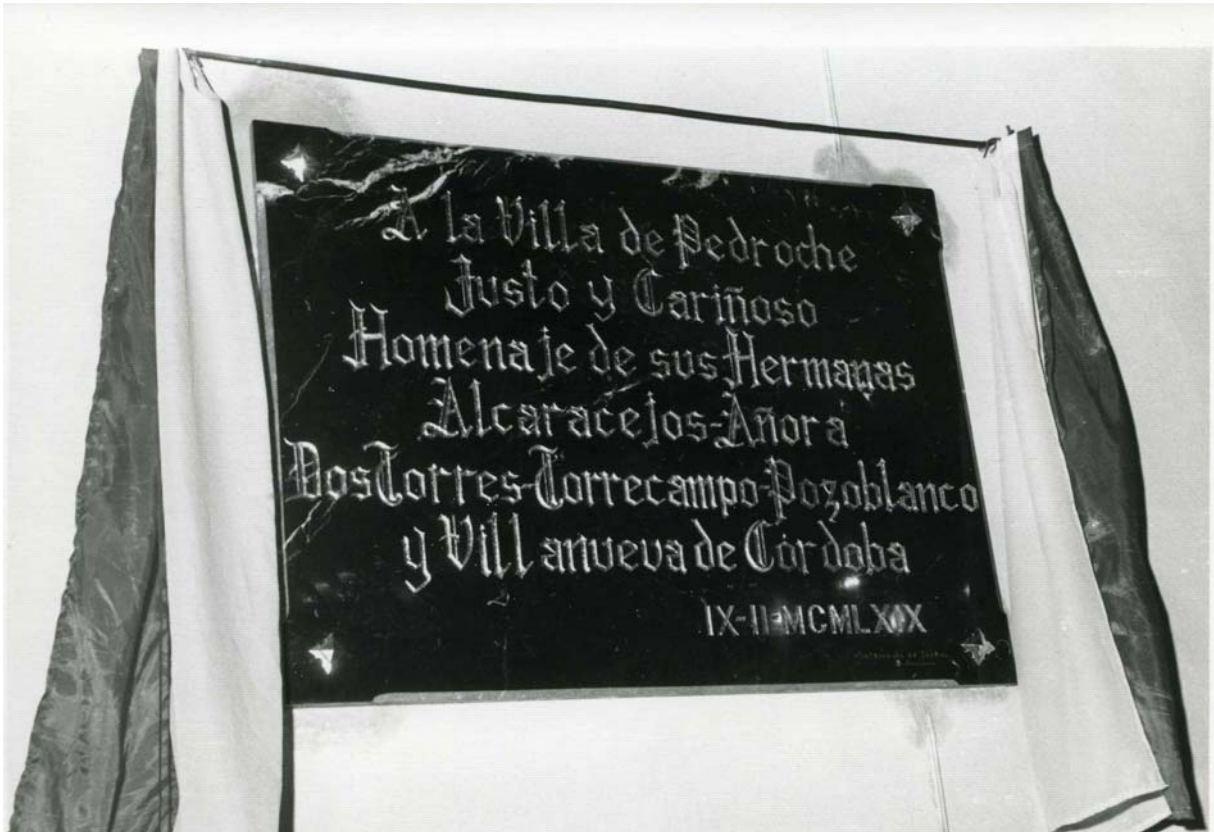 A la Villa de Pedroche
Justo y Cariñoso
Homenaje de sus Hermanas
Alcaracejos-Añora
Dos Torres-Torrecampo-Pozoblanco
y Villanueva de Córdoba
IX-II-MCMLXIX